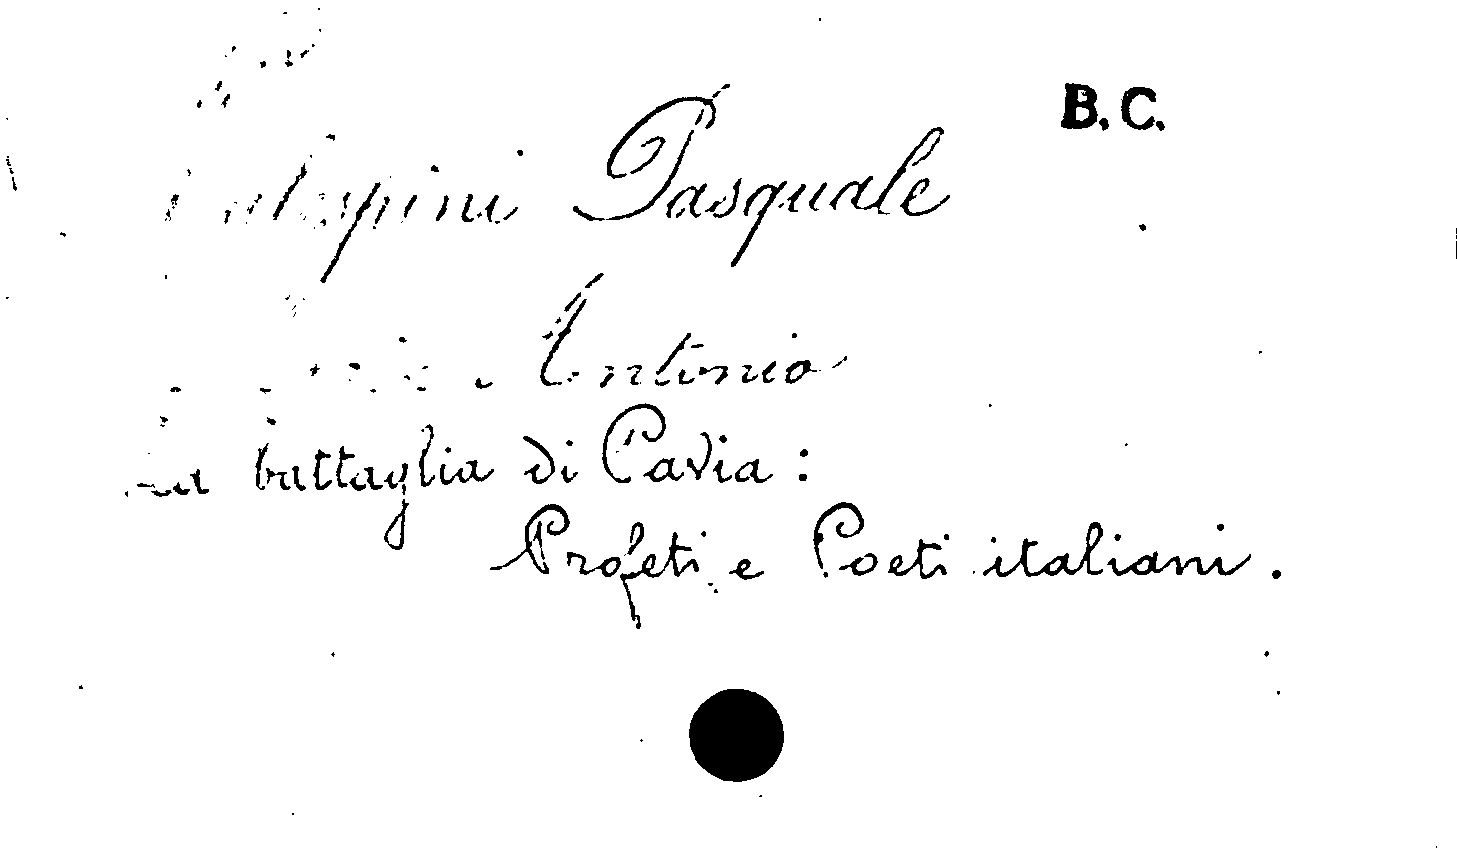 B.C.
Pasquale
Antonio
La battaglia di Pavia:
Profeti e Poeti italiani.